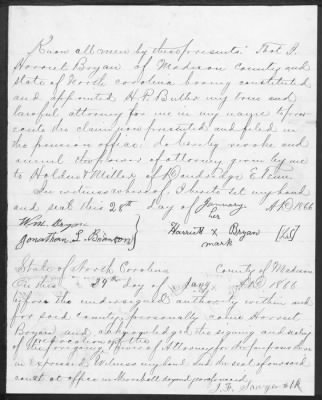 Know all men by these presents: That I
Harriet Bryan of Madison County and
State of North Carolina having constituted
and appointed H. P. Butler my true and
lawful attorney for me in my name to prose
cute the claim now presented and filed in
the pension office; do hereby revoke and
annul the power of attorney given by me
to Holden & Miller of Dandridge E. Tenn.
In witness whereof, I hereto set my hand
and seal this 28th Day of January AD 1866
Wm. Bryan
Jonathan L. Branson
Harriett X Bryan
her
mark
State of North Carolina County of Madison
On this 29th day of Jany AD 1866
before the undersigned authority within and
for said county, personally came Harriet
Bryan and acknowledged the signing and sealing
of the foregoing Power of Attorney for the purposes there
in expressed. Witness my hand and the seal of our said
court at office in Marshall